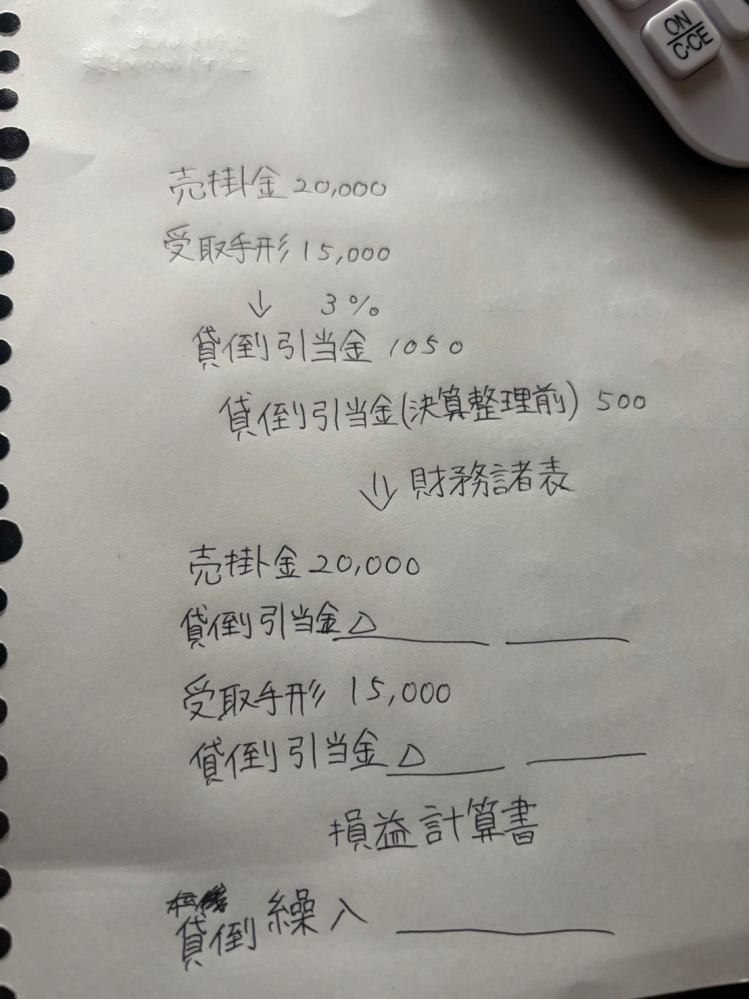 ON
C・CE
売掛金 20,000
受取手形 15,000
↓ 3%
貸倒引当金 1050
貸倒引当金(決算整理前) 500
⇓ 財務諸表
売掛金 20,000
貸倒引当金 △
受取手形 15,000
貸倒引当金 △
損益計算書
貸倒 繰入